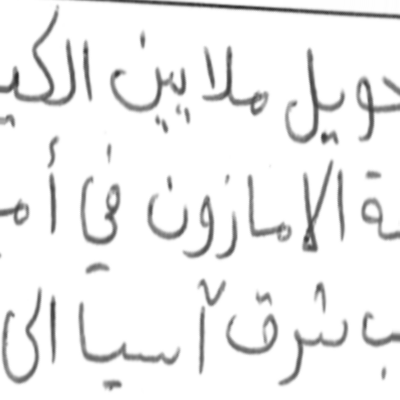 حويل ملايين الكي
ـة الامازون في أمـ
ـب شرق آسيا الى